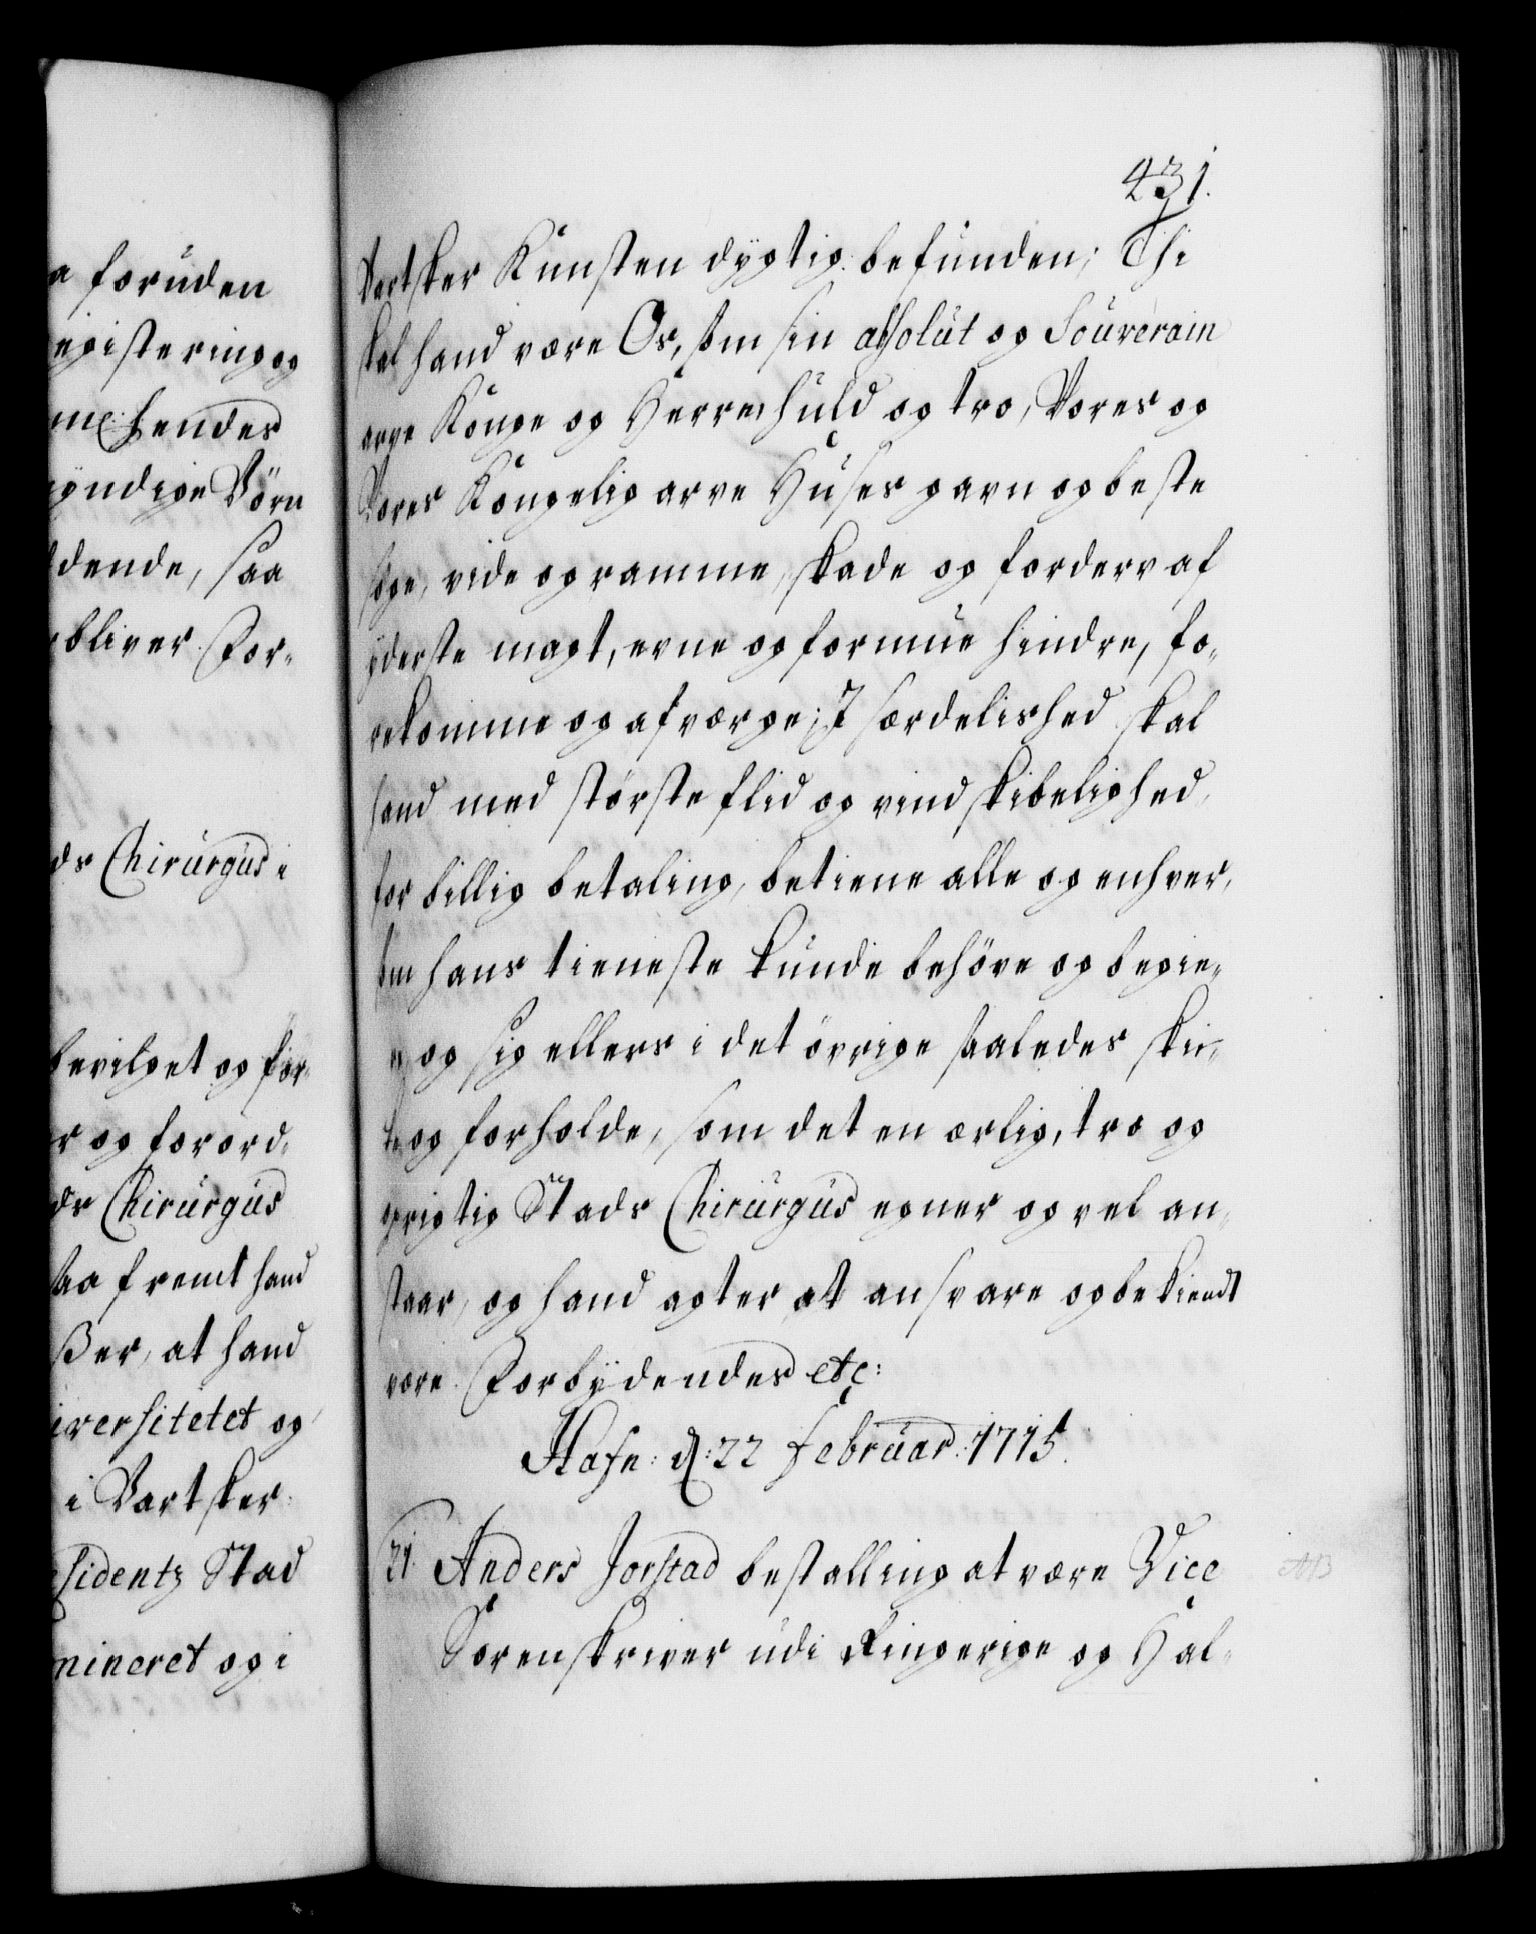 a foruden
egistering og
me: hendes
yndige Börn
dende, saa
bliver. For-
ds Chirurgus i
bevilget og for-
r og forord-
ds Chirurgus
saa fremt hand
ßer, at hand
iversitetet og
i Bartsker-
esidentz Stad
mineret og i
431.
Bartsker Kunsten dygtig befunden; Thi
skal hand være Os, som sin absolut og Souverain
arve Konge og Herre, huld og tro, Vores og
Vores Kongelig arve Huses gavn og beste
söge, vide og ramme, skade og forderv af
yderste magt, evne og formue hindre, fo-
rekomme og afværge; I særdelished skal
hand med störste flid og vindskibelighed,
for billig betaling, betiene alle og enhver,
som hans tieneste kunde behöve og begie-
re, og sig ellers i det övrige saaledes skic-
ke og forholde, som det en ærlig, tro og
oprigtig Stads Chirurgus egner og vel an-
staar, og hand agter at ansvare og bekiendt
være. Forbydendes etc:
Hafn: d: 22 Februar: 1715.
21. Anders Jorstad bestalling at være Vice
Sorenskriver udi Ringerige og Hal-